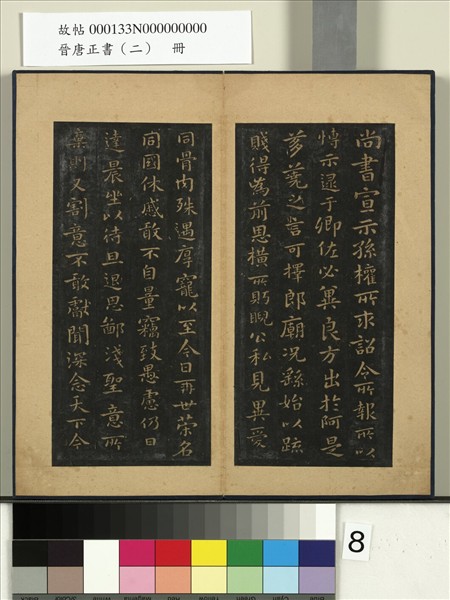 故帖 000133N000000000
晉唐正書（二） 冊
尚書宣示孫權所求詔令所報所以
博示逮于卿佐必冀良方出於阿是
芻蕘之言可擇郎廟況繇始以疏
賤得為前恩橫所眄睨公私見異愛
同骨肉殊遇厚寵以至今日再世榮名
同國休慼敢不自量竊致愚慮仍日
達晨坐以待旦退思鄙淺聖意所
棄則又割意不敢獻聞深念天下今
8